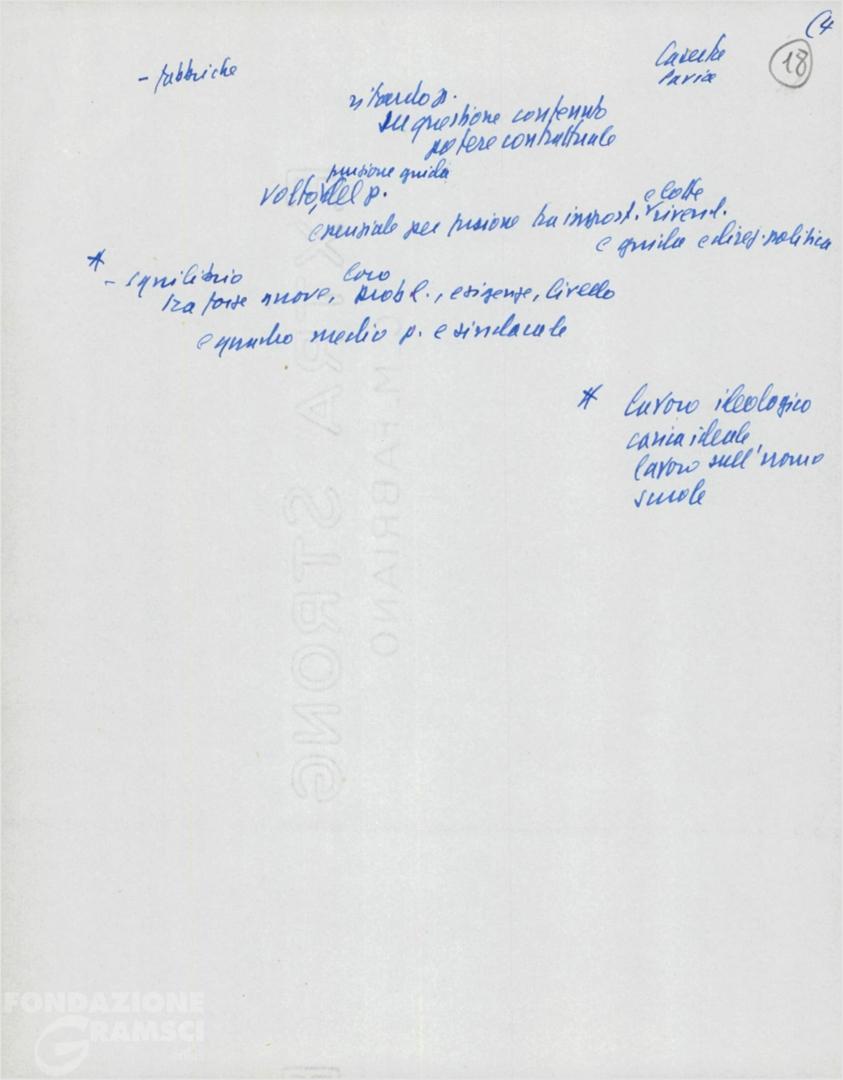 (4
18
- fabbriche
Pavia
ritardo p.
su questione contenuto
potere contrattuale
funzione guida
volto, del p.
e lotte
essenziale per fusione tra impost. rivend.
e guida e direz. politica
* - squilibrio
loro
tra forze nuove, probl., esigenze, livello
e quadro medio p. e sindacale
* lavoro ideologico
carica ideale
lavoro sull'uomo
scuole
EXTRA STRONG
C.M. FABRIANO
FONDAZIONE
GRAMSCI